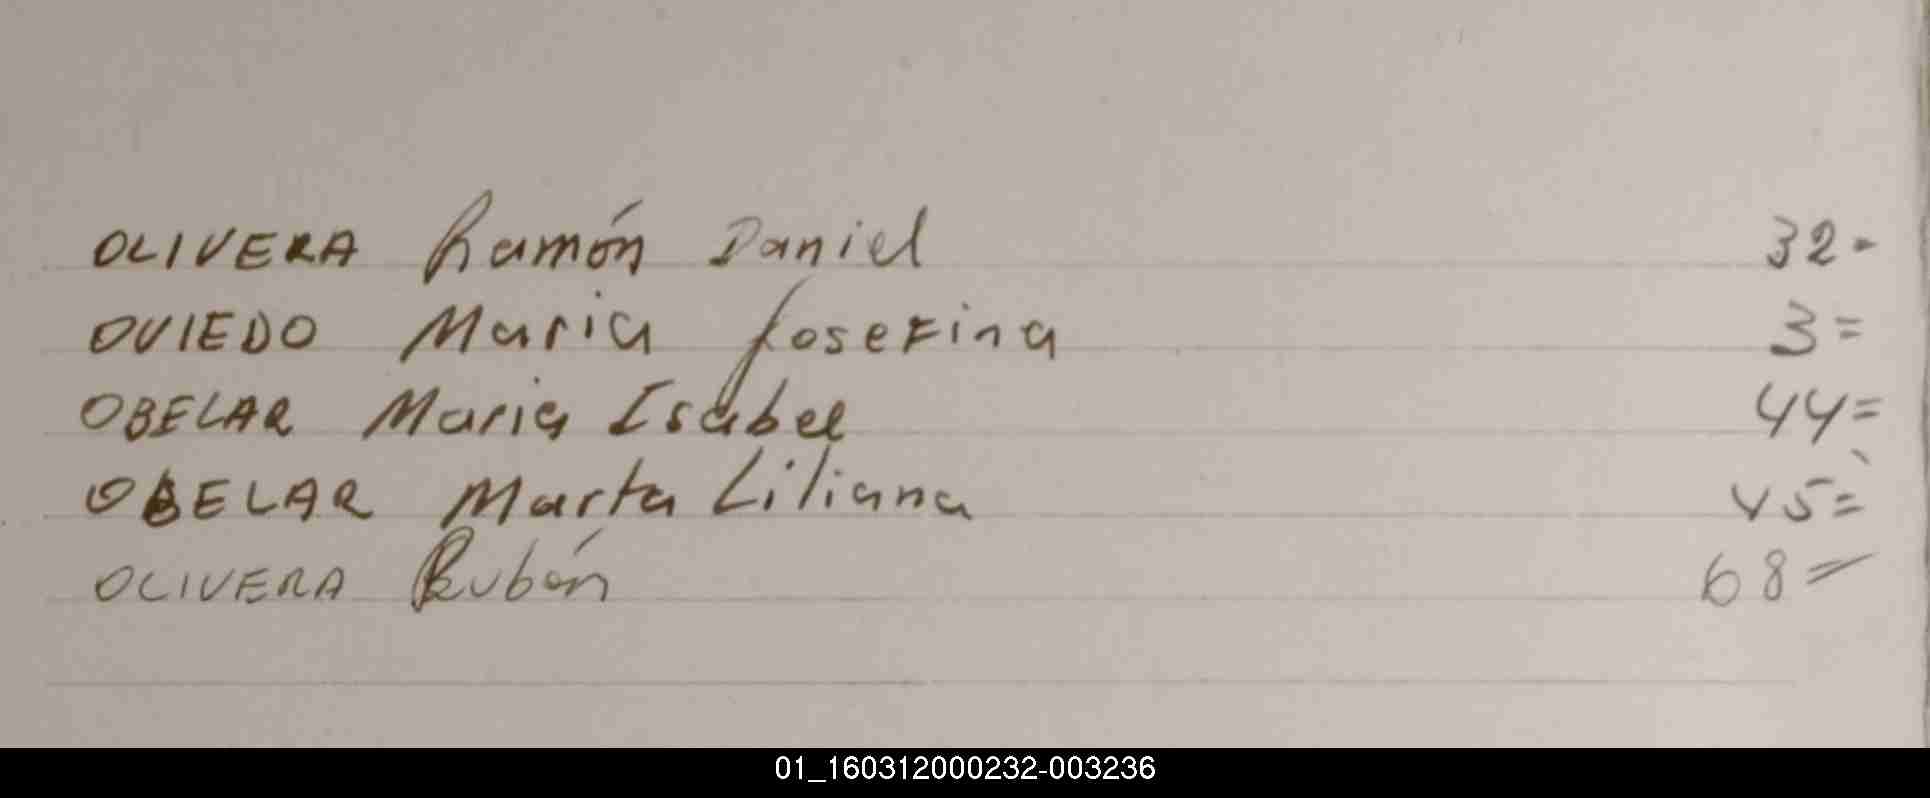 OLIVERA Ramón Daniel 32-
OVIEDO Maria Josefina 3=
OBELAR Maria Isabel 44=
OBELAR Marta Liliana 45=
OLIVERA Rubén 68=
01_160312000232-003236